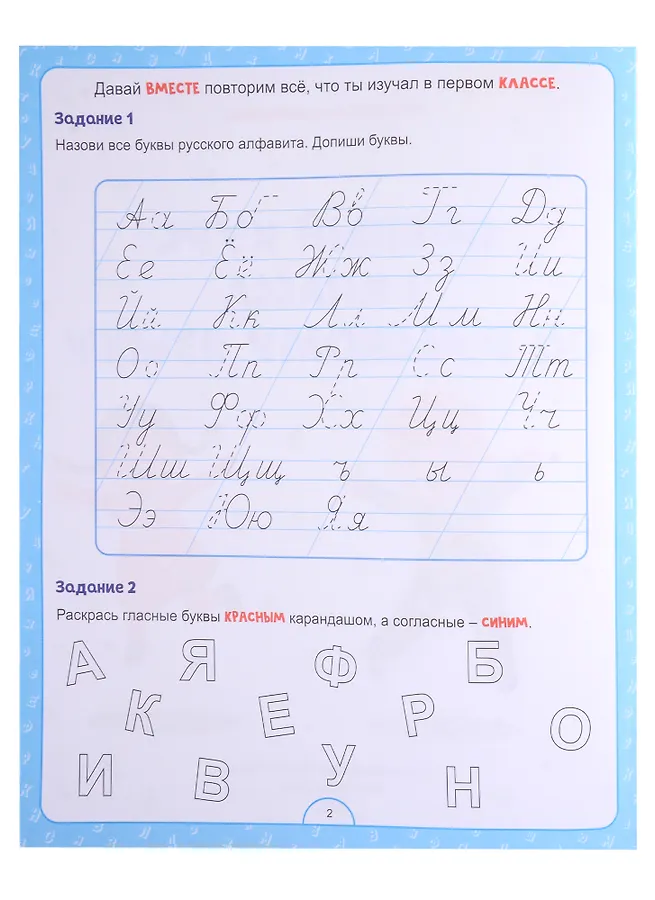 Давай ВМЕСТЕ повторим всё, что ты изучал в первом КЛАССЕ.
Задание 1
Назови все буквы русского алфавита. Допиши буквы.
Аа Бб Вв Гг Дд
Ее Ёё Жж Зз Ии
Йй Кк Лл Мм Нн
Оо Пп Рр Сс Тт
Уу Фф Хх Цц Чч
Шш Щщ ъ ы ь
Ээ Юю Яя
Задание 2
Раскрась гласные буквы КРАСНЫМ карандашом, а согласные – СИНИМ.
А Я Ф Б
К Е Р О
И В У Н
2